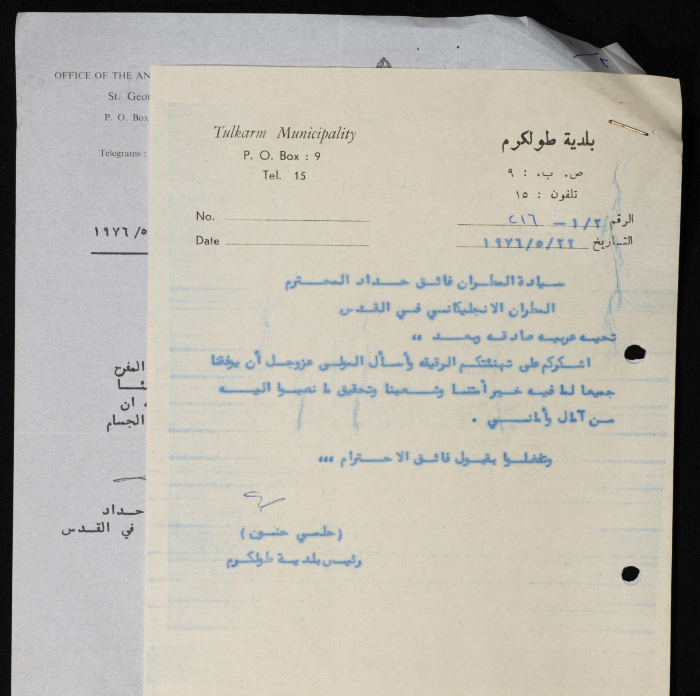 OFFICE OF THE AN
St. Geor
P. O. Box
Telegrams :
١٩٧٦/٥
المفرح
ان
الجسام
حداد
في القدس
Tulkarm Municipality
P. O. Box : 9
Tel. 15
No.
Date
بلدية طولكرم
ص. ب. : ٩
تلفون : ١٥
الرقم ١/٢ – ٢١٦
التاريخ ١٩٧٦/٥/٢٢
سيادة المطران فائق حداد المحترم
المطران الانجليكاني في القدس
تحيه عربيه صادقه وبعد ،،
اشكركم على تهنئتكم الرقيقه وأسأل المولى عزوجل أن يوفقنا
جميعا لما فيه خير أمتنا وشعبنا وتحقيق ما نصبوا اليه
من آمال وأماني .
وتفضلوا بقبول فائق الاحترام ،،،
(حلمي حنون)
رئيس بلدية طولكرم